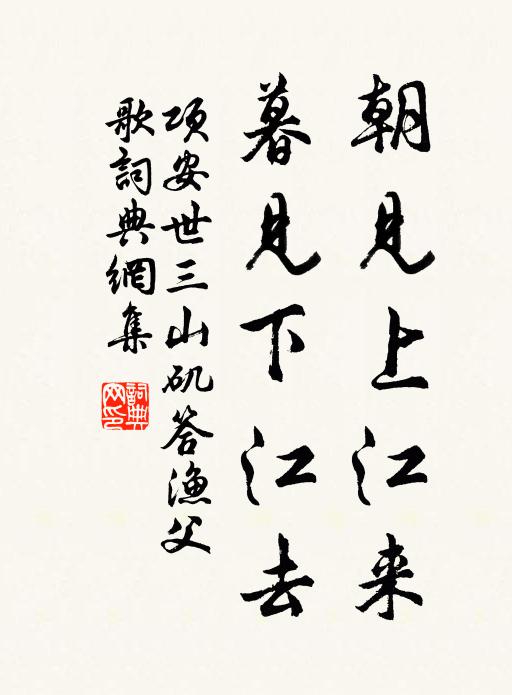 朝見上江来
暮見下江去
項安世三山矶答漁父
歌詞典網集
詞典网印